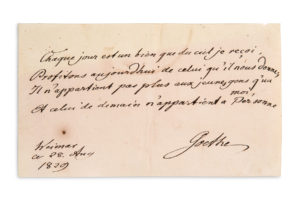 Chaque jour est un bien que du ciel je reçoi,
Profitons aujourdhui de celui qu'il nous donne;
Il n'appartient pas plus aux jeunes gens qu'a
moi,
Et celui de demain n'appartient a Personne
Weimar
28. Aug
1829
Goethe